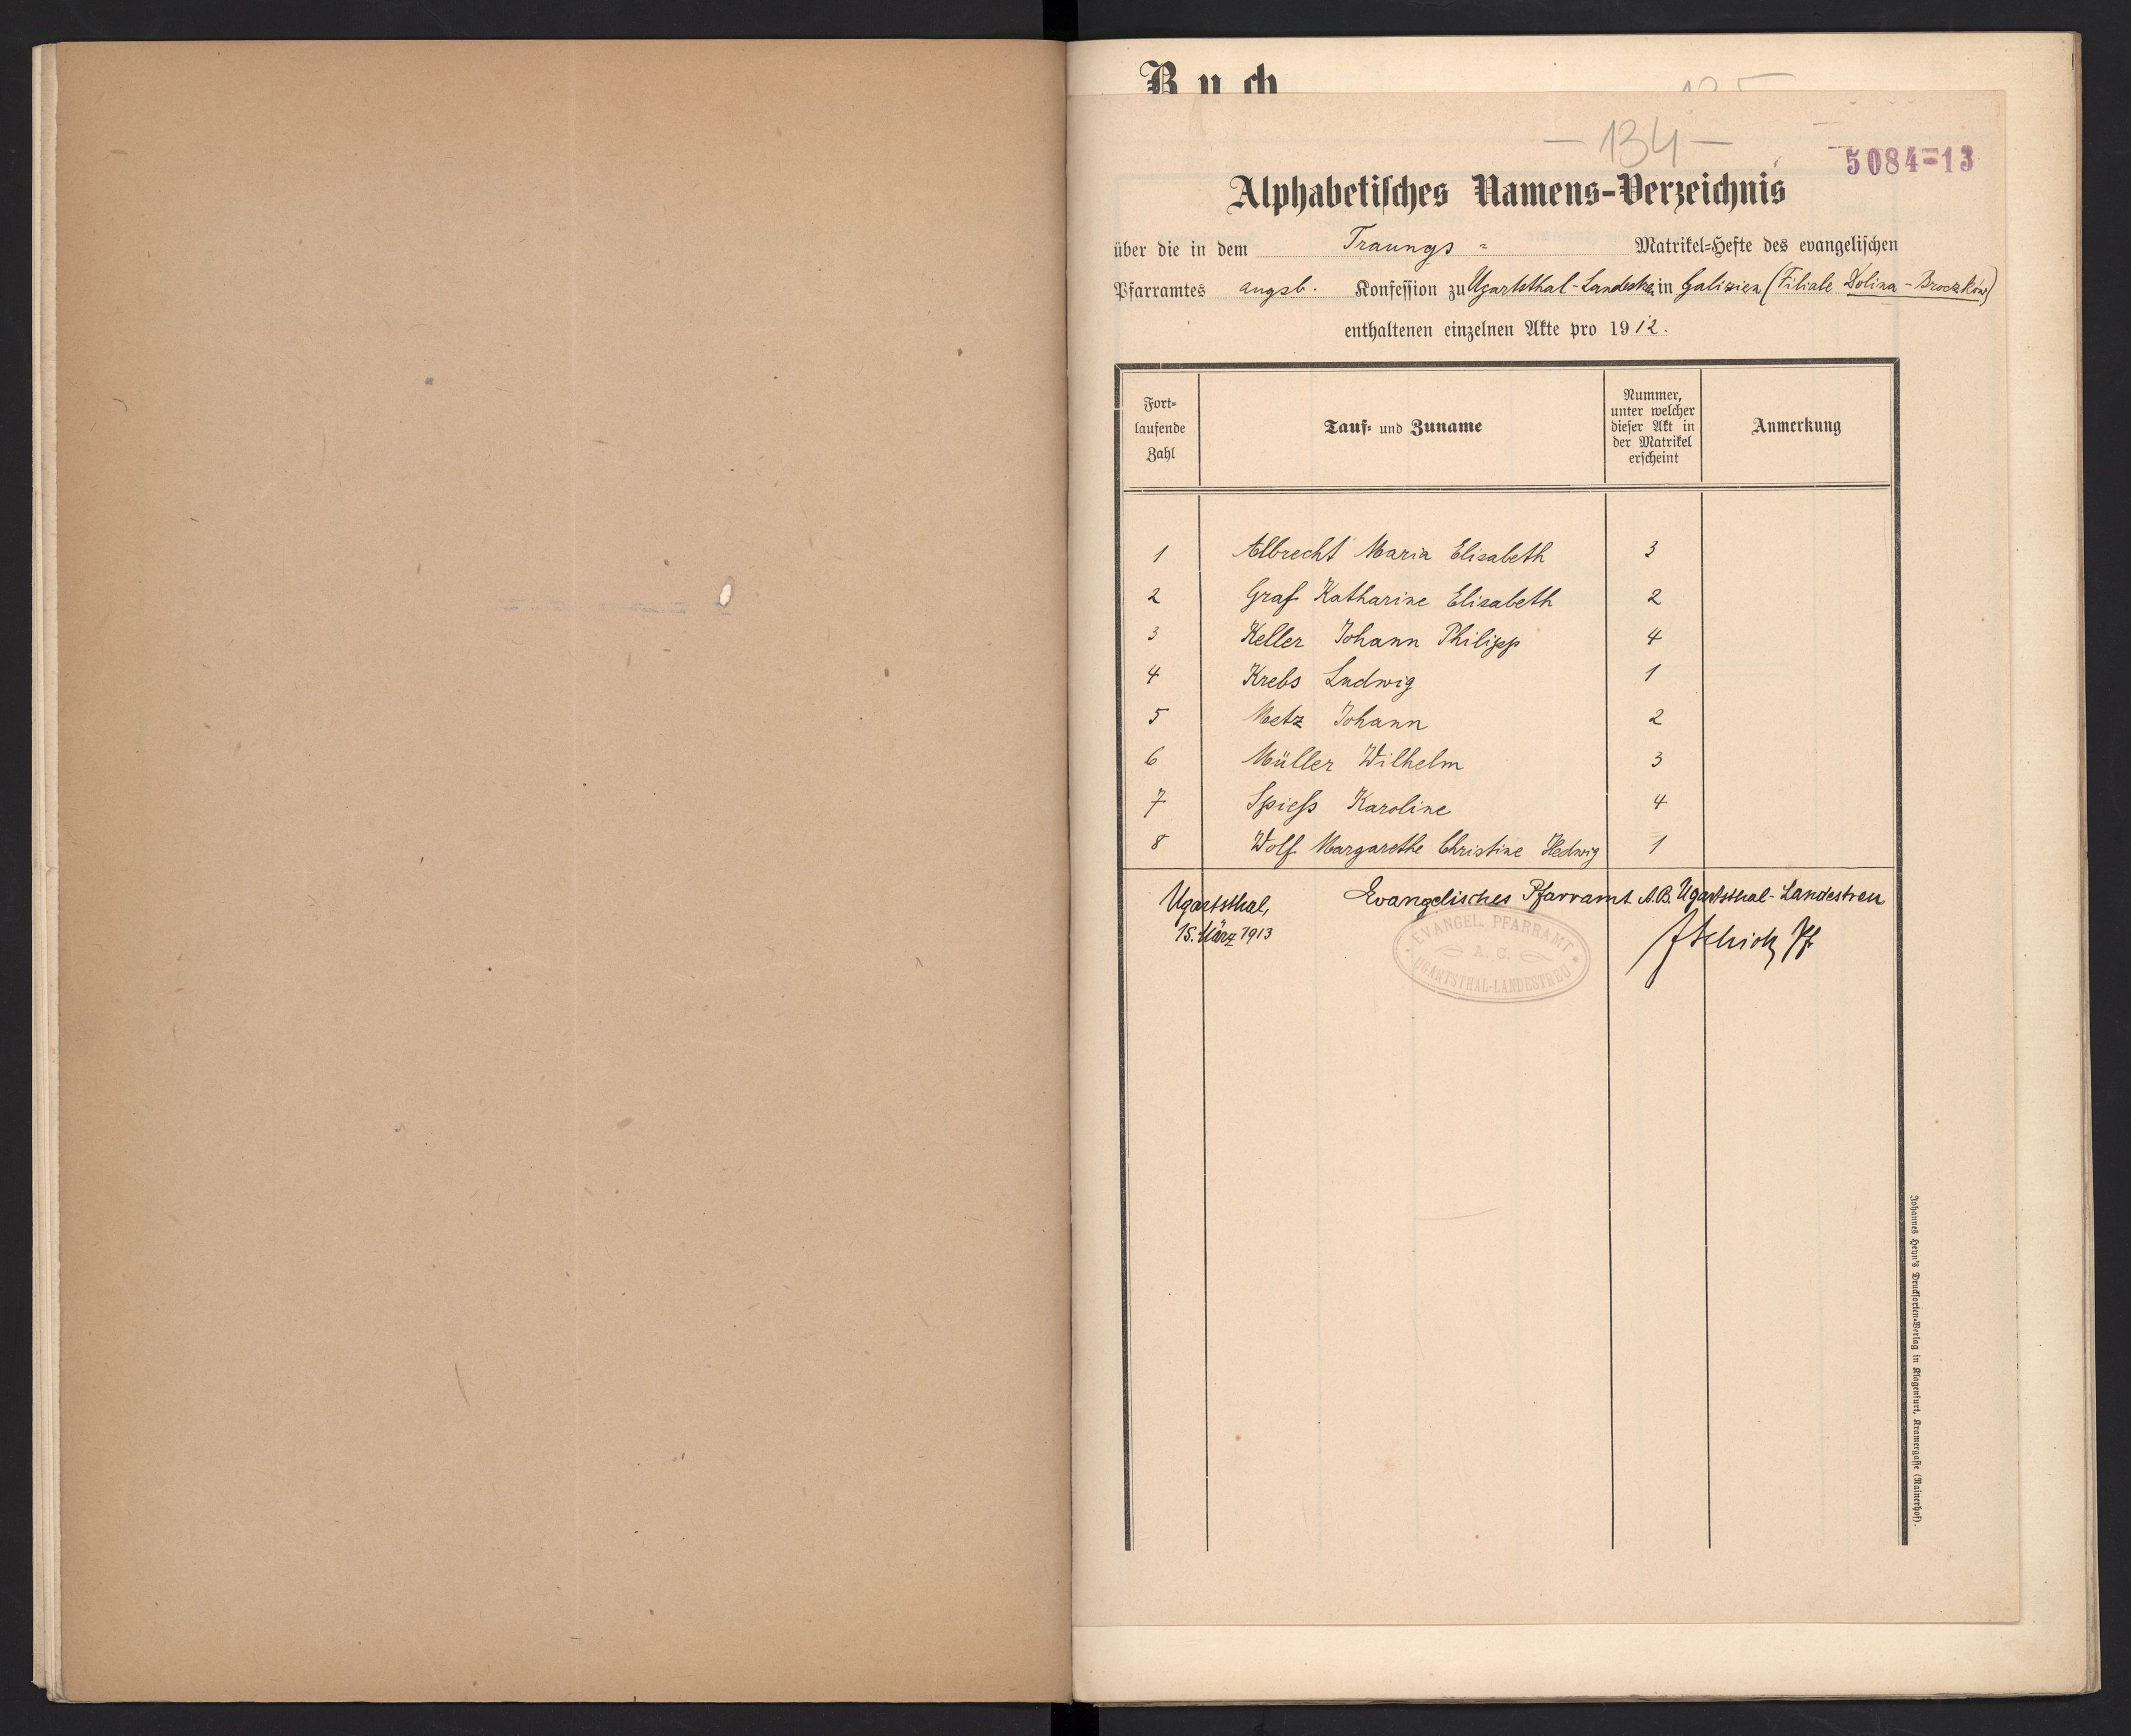 Buch
– 134 –
5084=13
Alphabetisches Namens-Verzeichnis
über die in dem Trauungs = Matrikel=Hefte des evangelischen
Pfarramtes augsb. Konfession zu Ugartsthal-Landestreu in Galizien (Filiale Dolina - Broczków)
enthaltenen einzelnen Akte pro 1912.
Fort=
laufende
Zahl
Tauf= und Zuname
Nummer,
unter welcher
dieser Akt in
der Matrikel
erscheint
Anmerkung
1 Albrecht Maria Elisabeth 3
2 Graf Katharine Elisabeth 2
3 Keller Johann Philipp 4
4 Krebs Ludwig 1
5 Metz Johann 2
6 Müller Wilhelm 3
7 Spieß Karoline 4
8 Wolf Margarethe Christine Hedwig 1
Ugartsthal,
15. März 1913
Evangelisches Pfarramt A.B. Ugartsthal-Landestreu
Pf.
EVANGEL. PFARRAMT
A. C.
UGARTSTHAL-LANDESTREU
Johannes Heyn's Drucksorten-Verlag in Klagenfurt, Kramergasse (Rainerhof).